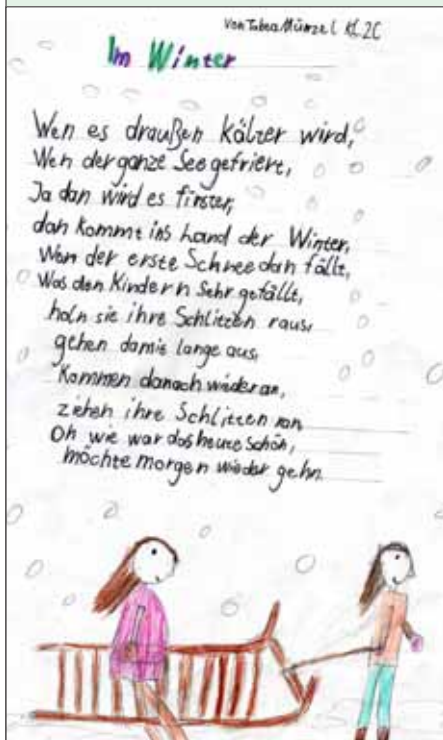 Von Tabea Münzel Kl. 2C
Im Winter
Wen es draußen kälter wird,
Wen der ganze See gefriert,
Ja dan wird es finster,
dan kommt ins Land der Winter,
Wen der erste Schnee dan fällt,
Was den Kindern Sehr gefällt,
holn sie ihre Schlitten raus,
gehen damit lange aus,
Kommen danach wieder an,
ziehen ihre Schlitten ran
Oh wie war das heute Schön,
möchte morgen wieder gehn.